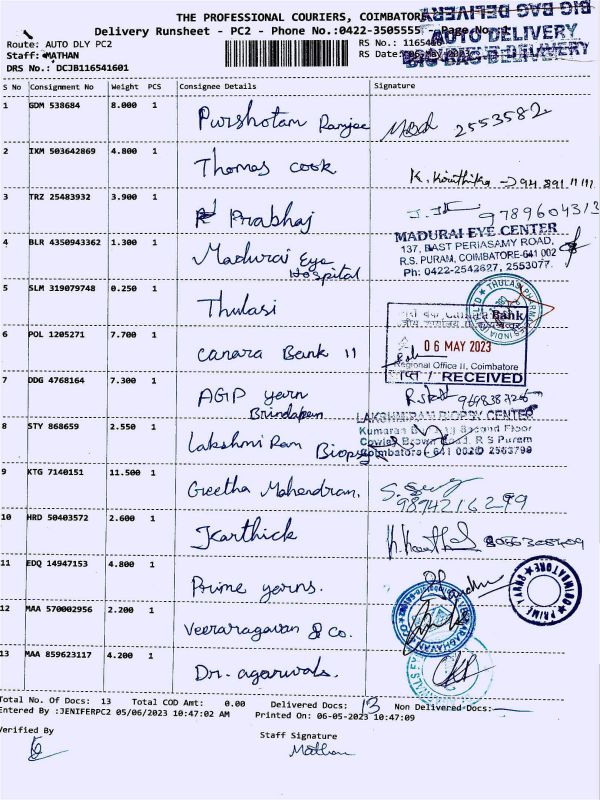 THE PROFESSIONAL COURIERS, COIMBATORE
Delivery Runsheet - PC2 - Phone No.:0422-3505555 - Page No.
BIG BAG DELIVERY
AUTO DELIVERY
BIG BAG DELIVERY
Route: AUTO DLY PC2
Staff: MATHAN
DRS No.: DCJB116541601
RS No.:
RS Date:
S No Consignment No Weight PCS Consignee Details Signature
1 GDM 538684 8.000 1 Purshotam 2553582
2 IXM 503642869 4.800 1 Thomas cook K. Kouthika
3 TRZ 25483932 3.900 1 Prabhaj 9789604313
4 BLR 4350943362 1.300 1 Madurai Eye Hospital
MADURAI EYE CENTER
137, EAST PERIASAMY ROAD,
R.S. PURAM, COIMBATORE-641 002
Ph: 0422-2542627, 2553077.
5 SLM 319079748 0.250 1 Thulasi
6 POL 1205271 7.700 1 Canara Bank 11
Canara Bank
06 MAY 2023
Regional Office II, Coimbatore
RECEIVED
7 DDG 4768164 7.300 1 AGP yarn
8 STY 868659 2.550 1 Lakshmi Ram Biopsy
LAKSHMI RAM BIOPSY CENTER
Second Floor
Cowley Brown Road, R S Puram
Coimbatore - 641 002
9 KTG 7140151 11.500 1 Geetha Mahendran. 9874216299
10 HRD 50403572 2.600 1 Karthick
11 EDQ 14947153 4.800 1 Prime yarns.
PRIME YARNS COIMBATORE
12 MAA 570002956 2.200 1 Veeraragavan & Co.
13 MAA 859623117 4.200 1 Dr. agarwals.
Total No. Of Docs: 13 Total COD Amt: 0.00 Delivered Docs: 13 Non Delivered Docs:
Entered By :JENIFERPC2 05/06/2023 10:47:02 AM Printed On: 06-05-2023 10:47:09
Verified By
Staff Signature
Mathan